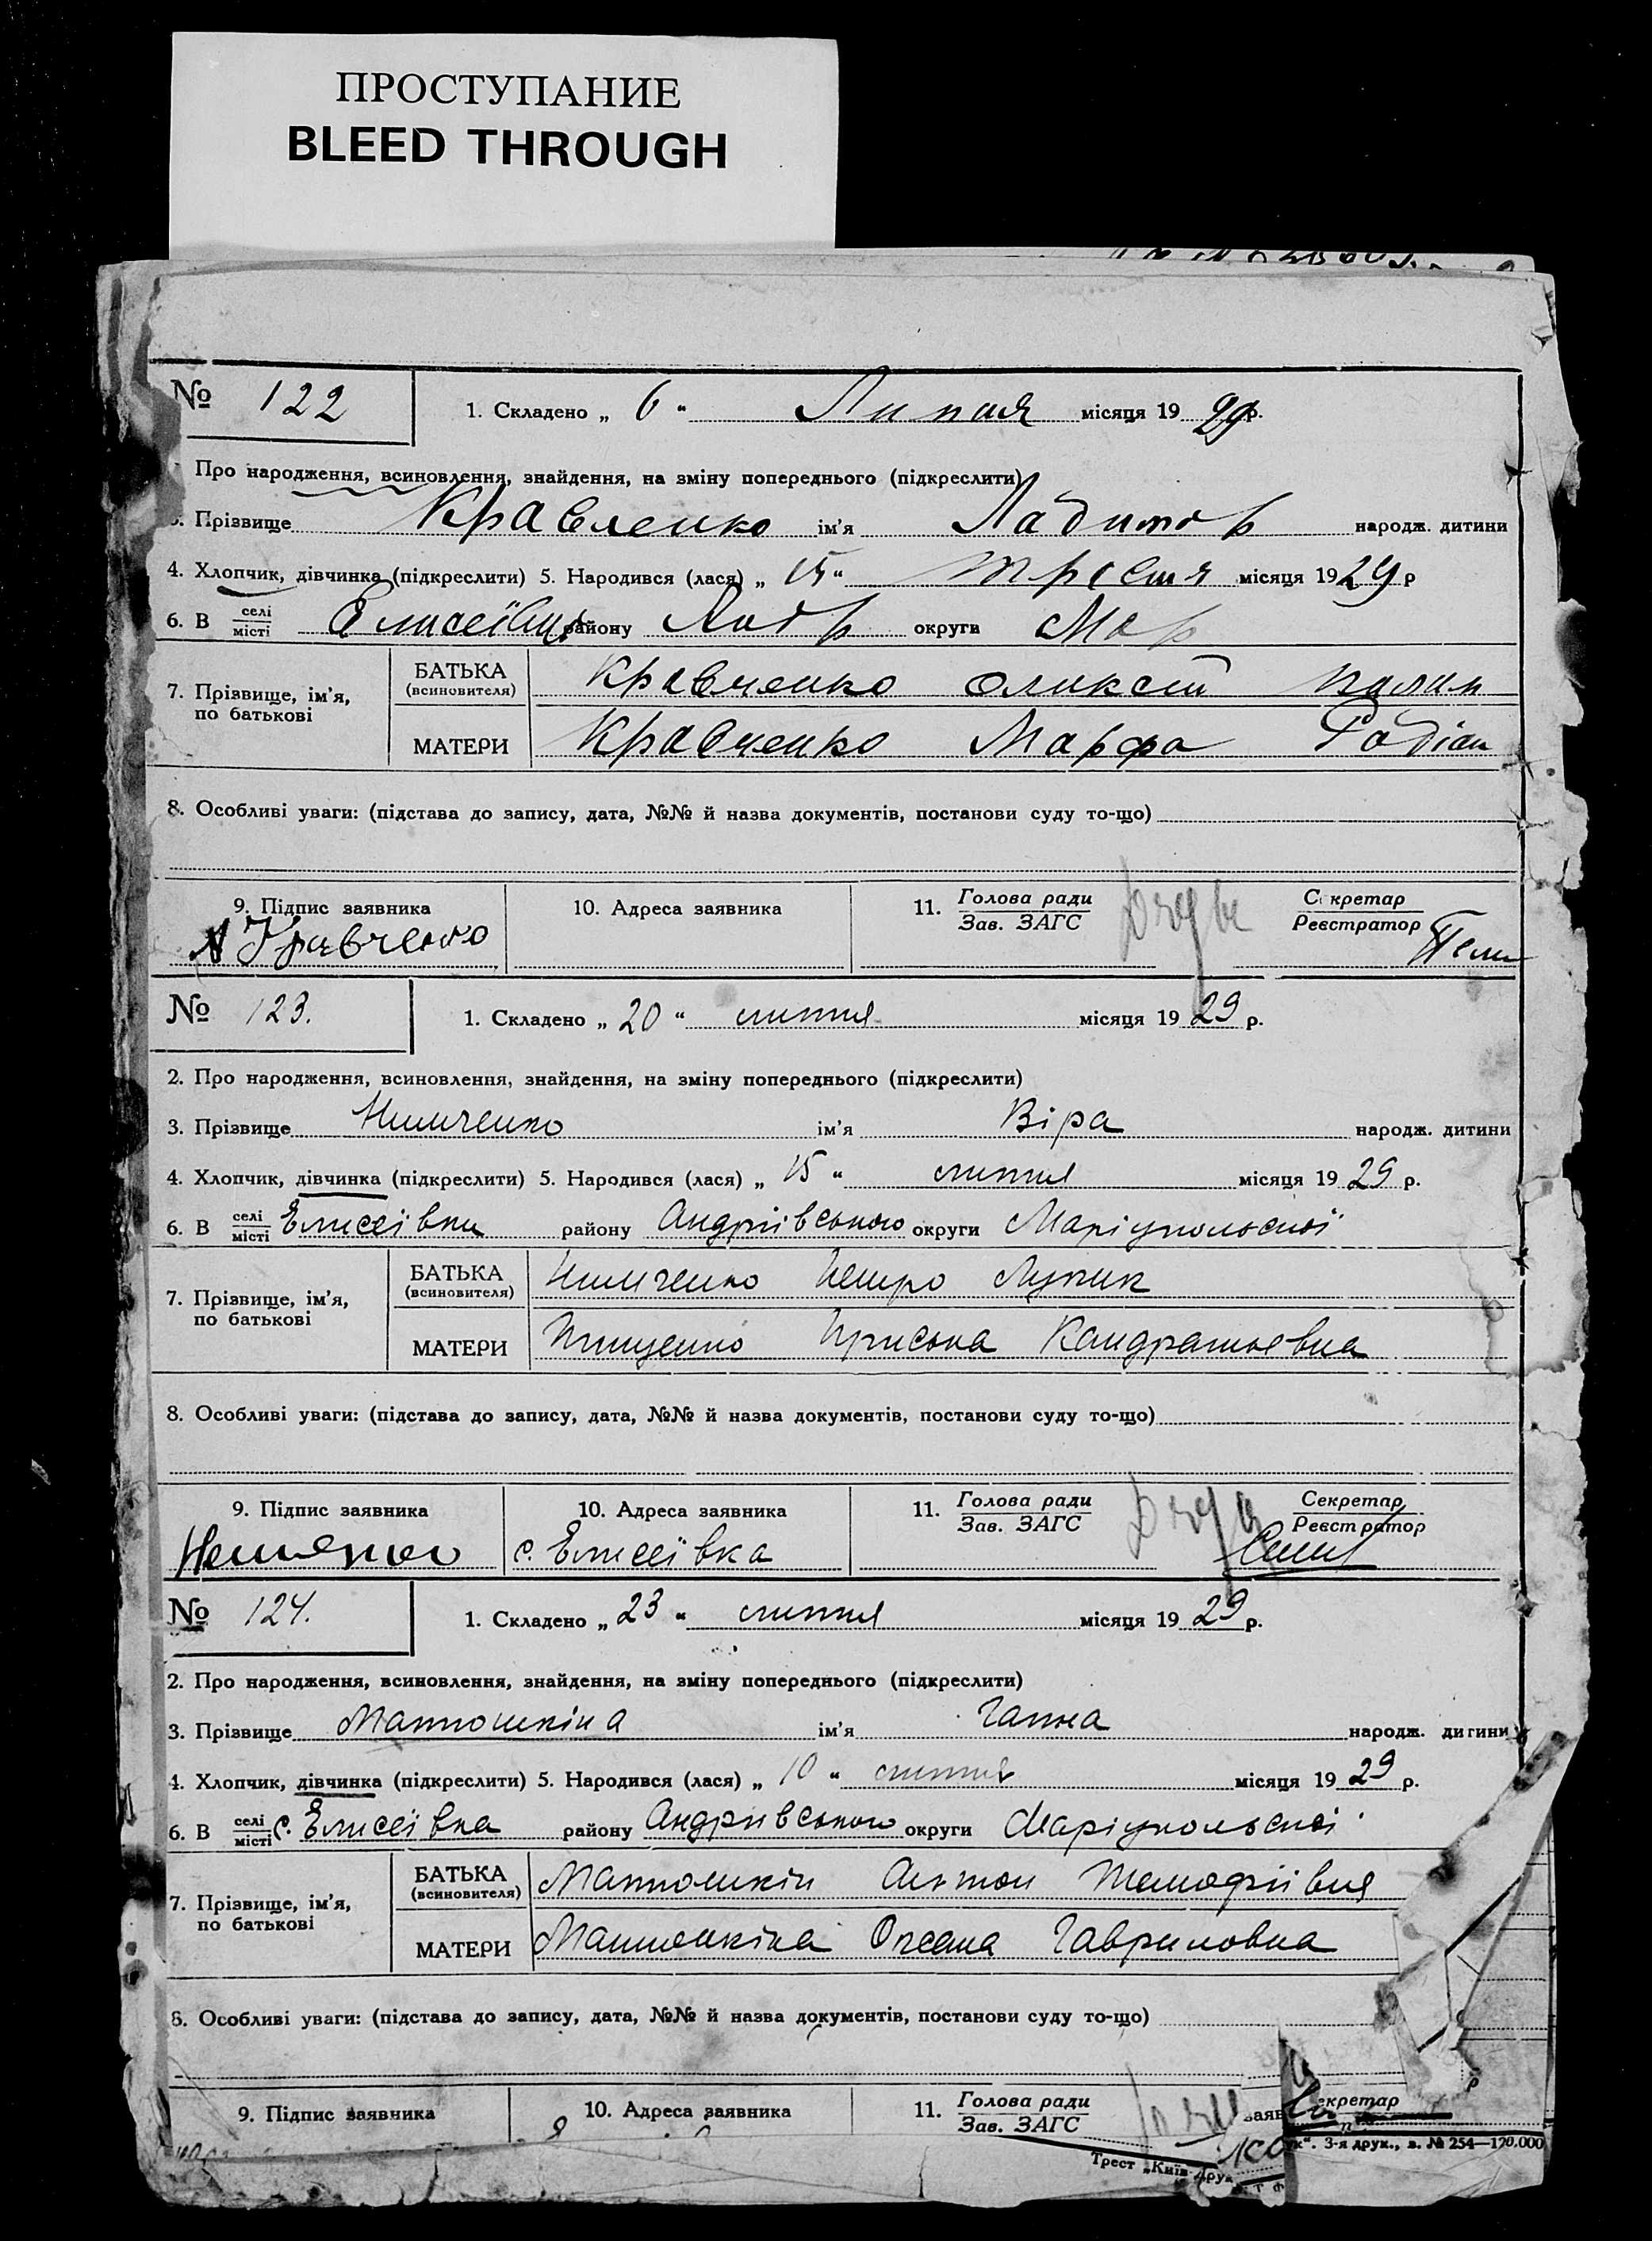 ПРОСТУПАНИЕ
BLEED THROUGH
№ 122
1. Складено „ 6 “ Липня місяця 19 29 р.
Про народження, всиновлення, знайдення, на зміну попереднього (підкреслити)
3. Прізвище Кравченко ім'я народж. дитини
4. Хлопчик, дівчинка (підкреслити) 5. Народився (лася) „ 15 “ місяця 19 29 р
6. В селі/місті Елисеївці району округи Мар
7. Прізвище, ім'я, по батькові
БАТЬКА (всиновителя) Кравченко Олексій
МАТЕРИ Кравченко Марфа Радіан
8. Особливі уваги: (підстава до запису, дата, №№ й назва документів, постанови суду то-що)
9. Підпис заявника
10. Адреса заявника
11. Голова ради/Зав. ЗАГС
Секретар/Реєстратор
А Кравченко
№ 123.
1. Складено „ 20 “ липня місяця 19 29 р.
2. Про народження, всиновлення, знайдення, на зміну попереднього (підкреслити)
3. Прізвище Нимченко ім'я Віра народж. дитини
4. Хлопчик, дівчинка (підкреслити) 5. Народився (лася) „ 15 “ липня місяця 19 29 р.
6. В селі/місті Елисеївки району Андріївського округи Маріупольської
7. Прізвище, ім'я, по батькові
БАТЬКА (всиновителя) Нимченко Петро
МАТЕРИ Приська Кандратьевна
8. Особливі уваги: (підстава до запису, дата, №№ й назва документів, постанови суду то-що)
9. Підпис заявника
10. Адреса заявника
11. Голова ради/Зав. ЗАГС
Секретар/Реєстратор
с. Елисеївка
№ 124.
1. Складено „ 23 “ липня місяця 19 29 р.
2. Про народження, всиновлення, знайдення, на зміну попереднього (підкреслити)
3. Прізвище Матюшкіна ім'я Ганна народж. дитини
4. Хлопчик, дівчинка (підкреслити) 5. Народився (лася) „ 10 “ липня місяця 19 29 р.
6. В селі/місті с. Елисеївка району Андрівського округи Маріупольської
7. Прізвище, ім'я, по батькові
БАТЬКА (всиновителя) Матюшкін Антон
МАТЕРИ Матюшкіна Оксана Гавриловна
8. Особливі уваги: (підстава до запису, дата, №№ й назва документів, постанови суду то-що)
9. Підпис заявника
10. Адреса заявника
11. Голова ради/Зав. ЗАГС
екретар
Трест „Київ-Друк
3-я друк., з. № 254—170.000